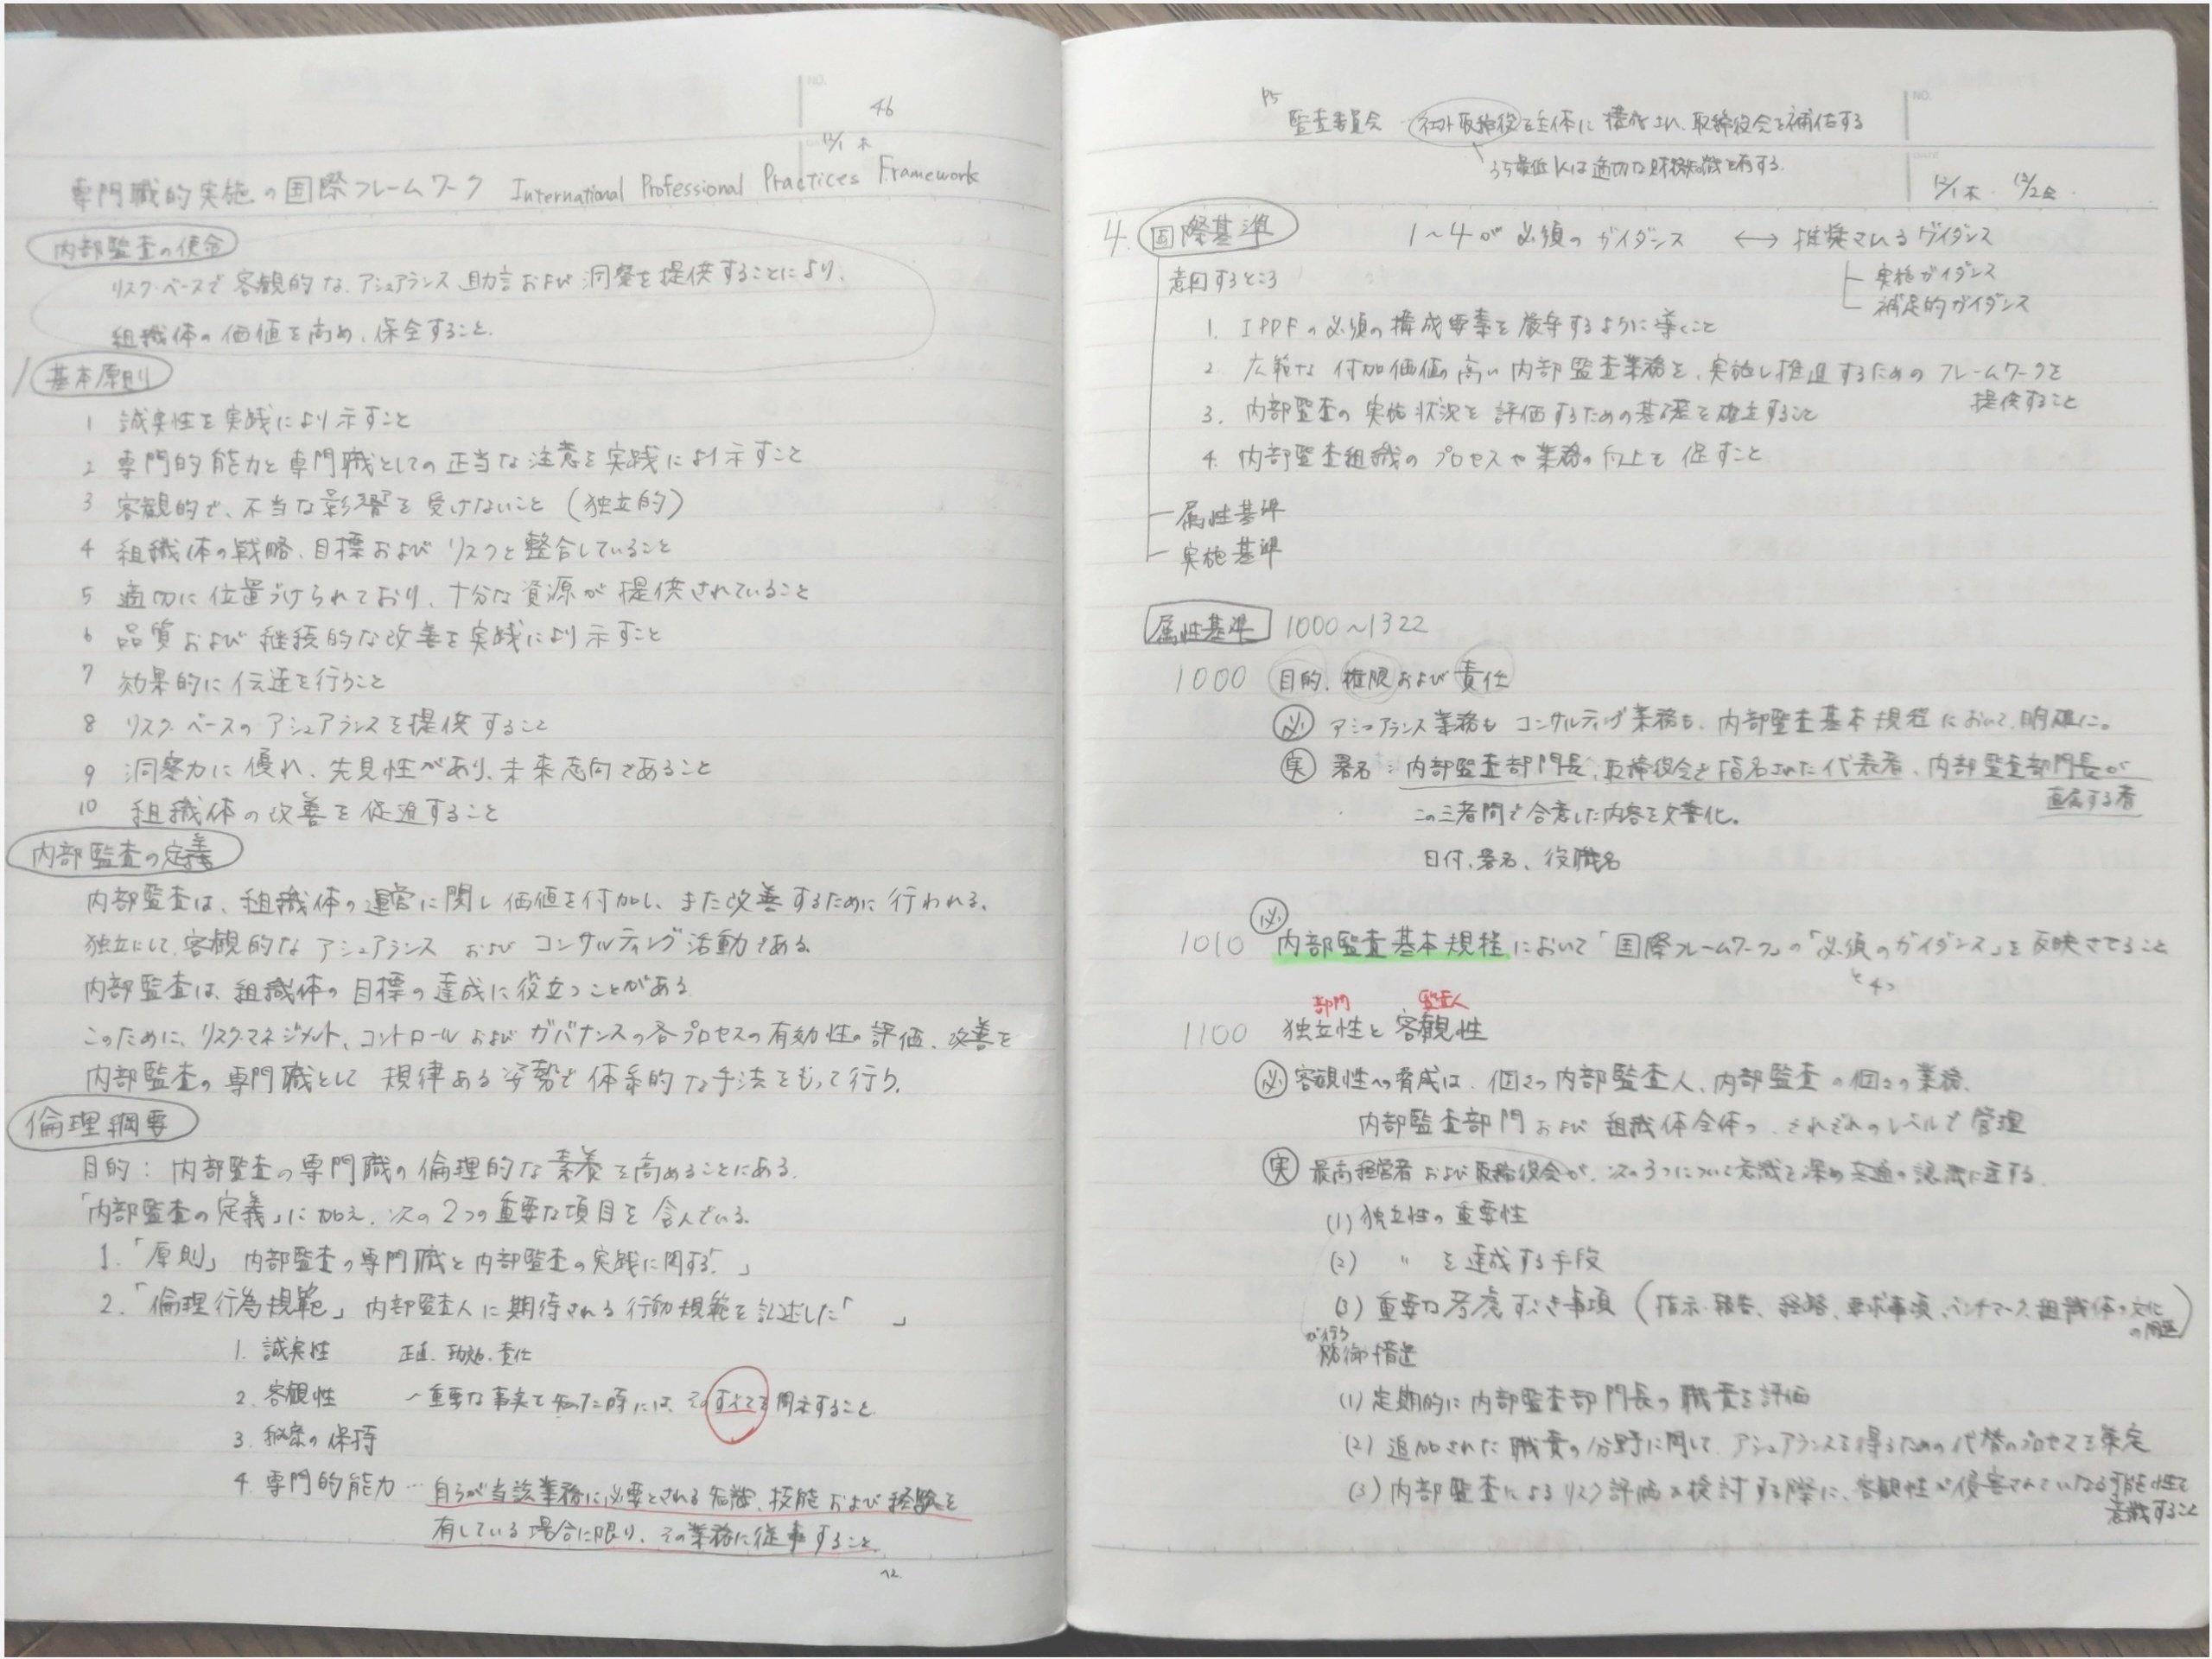 46
12/1 木
専門職的実施の国際フレームワーク International Professional Practices Framework
内部監査の使命
リスク・ベースで客観的な、アシュアランス、助言および洞察を提供することにより、
組織体の価値を高め、保全すること。
1 基本原則
1 誠実性を実践により示すこと
2 専門的能力と専門職としての正当な注意を実践により示すこと
3 客観的で、不当な影響を受けないこと（独立的）
4 組織体の戦略、目標およびリスクと整合していること
5 適切に位置づけられており、十分な資源が提供されていること
6 品質および継続的な改善を実践により示すこと
7 効果的に伝達を行うこと
8 リスク・ベースのアシュアランスを提供すること
9 洞察力に優れ、先見性があり、未来志向であること
10 組織体の改善を促進すること
内部監査の定義
内部監査は、組織体の運営に関し価値を付加し、また改善するために行われる、
独立にして、客観的なアシュアランス および コンサルティング活動である。
内部監査は、組織体の目標の達成に役立つことがある
このために、リスクマネジメント、コントロールおよび ガバナンスの各プロセスの有効性の評価、改善を
内部監査の専門職として 規律ある姿勢で体系的な手法をもって行う。
倫理綱要
目的：内部監査の専門職の倫理的な素養を高めることにある。
「内部監査の定義」に加え、次の2つの重要な項目を含んでいる。
1.「原則」内部監査の専門職と内部監査の実践に関する「 」
2.「倫理行為規範」内部監査人に期待される行動規範を記述した「 」
1. 誠実性 正直、責任
2. 客観性 〜重要な事実を知った時には、そのすべてを開示すること
3. 秘密の保持
4. 専門的能力 … 自らが当該業務に必要とされる知識、技能および経験を
有している場合に限り、その業務に従事すること
P5
監査委員会 社外取締役を主体に構成され、取締役会を補佐する
うち最低1人は適切な財務知識を有する。
12/1 木 12/2 金
4. 国際基準 1〜4が必須のガイダンス ⟷ 推奨されるガイダンス
実施ガイダンス
意図するところ
補足的ガイダンス
1. IPPFの必須の構成要素を厳守するように導くこと
2. 広範な付加価値の高い内部監査業務を、実施し推進するためのフレームワークを
提供すること
3. 内部監査の実施状況を評価するための基礎を確立すること
4. 内部監査組織のプロセスや業務の向上を促すこと
属性基準
実施基準
属性基準 1000〜1322
1000 目的、権限および責任
必 アシュアランス業務も コンサルティング業務も、内部監査基本規程において、明確に。
実 署名：内部監査部門長、取締役会と指名された代表者、内部監査部門長が
直属する者
この三者間で合意した内容を文書化。
日付、署名、役職名
必
1010 内部監査基本規程において「国際フレームワーク」の「必須のガイダンス」を反映させること
部門 監査人
1100 独立性と客観性
必 客観性への脅威は、個々の内部監査人、内部監査の個々の業務、
内部監査部門および組織体全体の、それぞれのレベルで管理
実 最高経営者および取締役会が、次の3つについて意識を深め共通の認識に達する。
(1) 独立性の重要性
(2) 〃 を達成する手段
(3) 重要な考慮すべき事項（指示・報告、経路、要求事項、ベンチマーク、組織体の文化
の問題）
が行う
防御措置
(1) 定期的に内部監査部門長の職責を評価
(2) 追加された職責の分野に関して、アシュアランスを得るための代替のプロセスを策定
(3) 内部監査によるリスク評価を検討する際に、客観性が侵害されている可能性を
意識すること